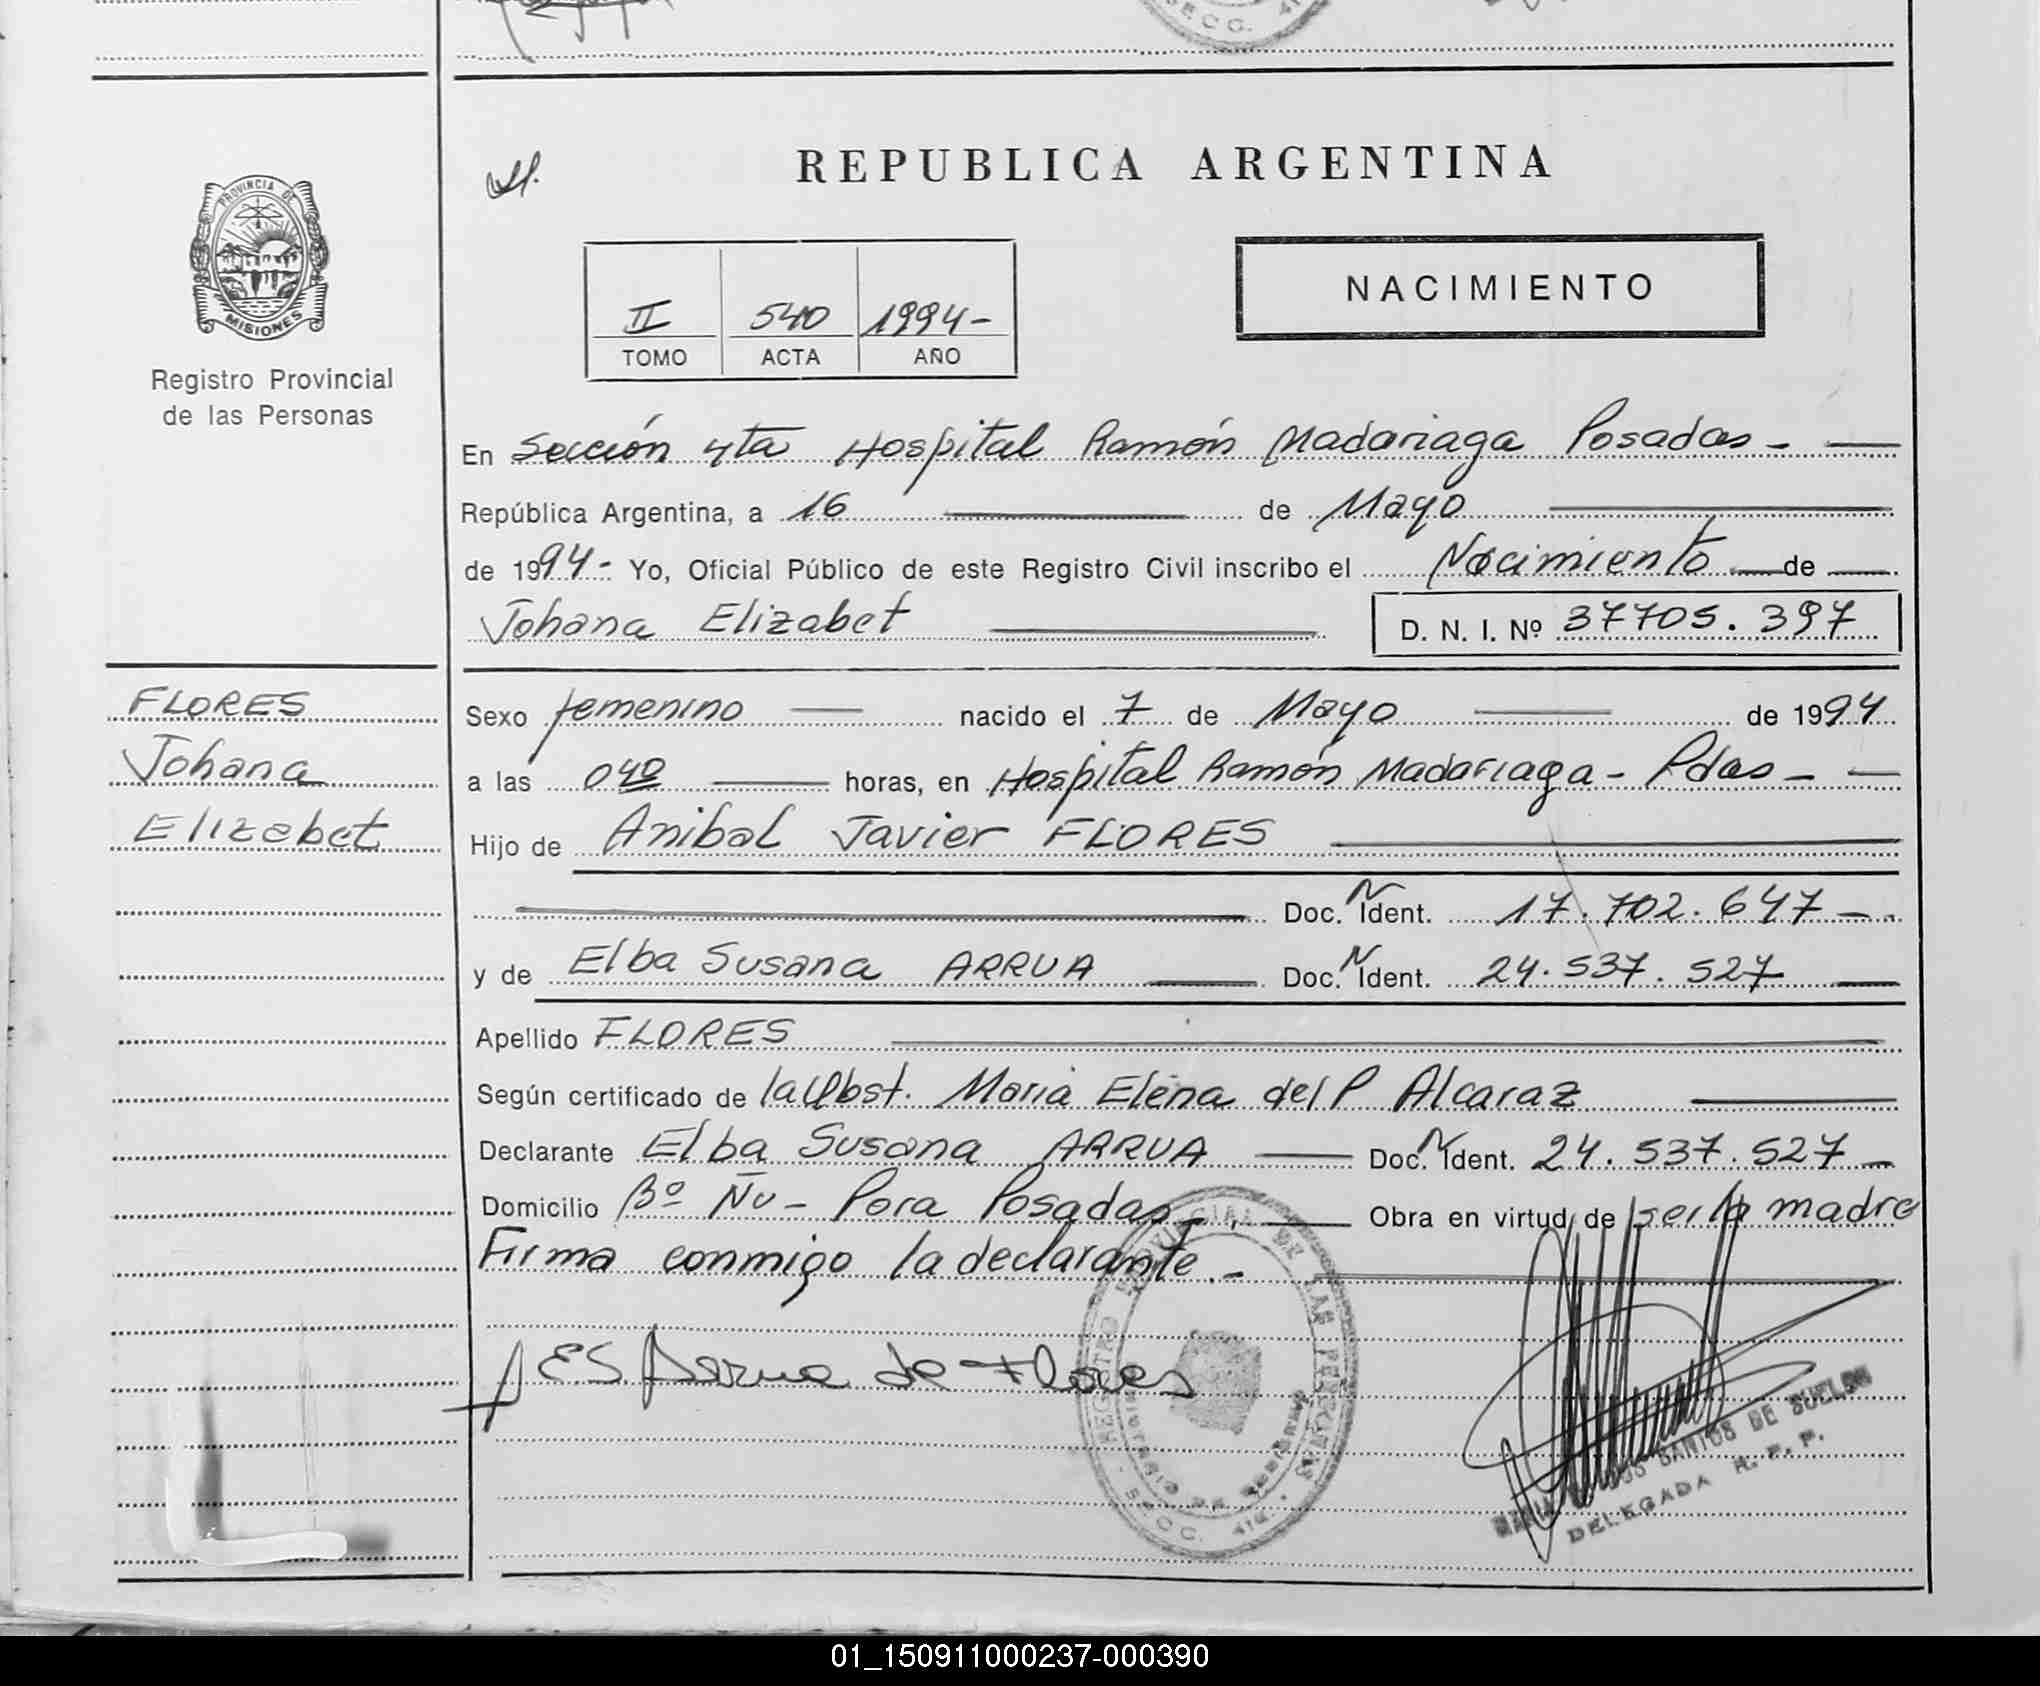 SECC. 4ta.
PROVINCIA DE
MISIONES
Registro Provincial
de las Personas
REPUBLICA ARGENTINA
NACIMIENTO
II 540 1994-
TOMO ACTA AÑO
En Sección 4ta Hospital Ramón Madariaga Posadas -
República Argentina, a 16 de Mayo
de 1994- Yo, Oficial Público de este Registro Civil inscribo el Nacimiento de
Johana Elizabet D. N. I. Nº 37705.397
FLORES
Johana
Elizabet
Sexo femenino nacido el 7 de Mayo de 1994
a las 0 40 horas, en Hospital Ramón Madariaga - Pdas -
Hijo de Anibal Javier FLORES
Doc. N Ident. 17.702.647 -
y de Elba Susana ARRUA Doc. N Ident. 24.537.527
Apellido FLORES
Según certificado de la Obst. Maria Elena del P Alcaraz
Declarante Elba Susana ARRUA Doc. N Ident. 24.537.527 -
Domicilio Bº Ñu - Pora Posadas Obra en virtud de ser la madre
Firma conmigo la declarante. -
E.S. Arrua de Flores
REGISTRO PROVINCIAL DE LAS PERSONAS
SECC. 4ta.
SANTOS DE
DELEGADA R. P. P.
01_150911000237-000390